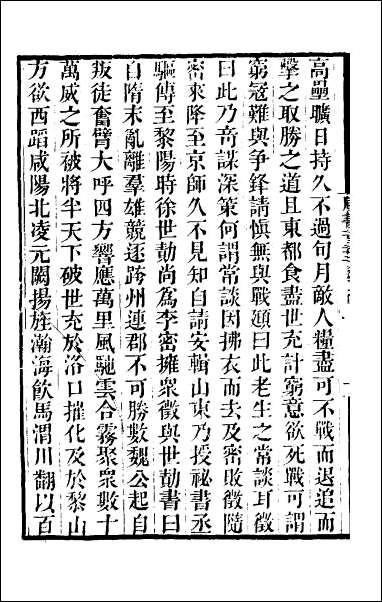 高壘曠日持久不過旬月敵人糧盡可不戰而退追而
擊之取勝之道且東都食盡世充計窮意欲死戰可謂
窮寇難與争鋒請慎無與戰頲曰此老生之常談耳徵
曰此乃竒謀深策何謂常談因拂衣而去及密敗徵隨
密來降至京師久不見知自請安輯山東乃授祕書丞
驅傳至黎陽時徐世勣尚爲李密擁衆徵與世勣書曰
自隋末亂離羣雄競逐跨州連郡不可勝數魏公起自
叛徒奮臂大呼四方響應萬里風馳雲合霧聚衆數十
萬威之所被將半天下破世充於洛口摧化及於黎山
方欲西蹈咸陽北凌元闕揚旌瀚海飲馬渭川翻以百